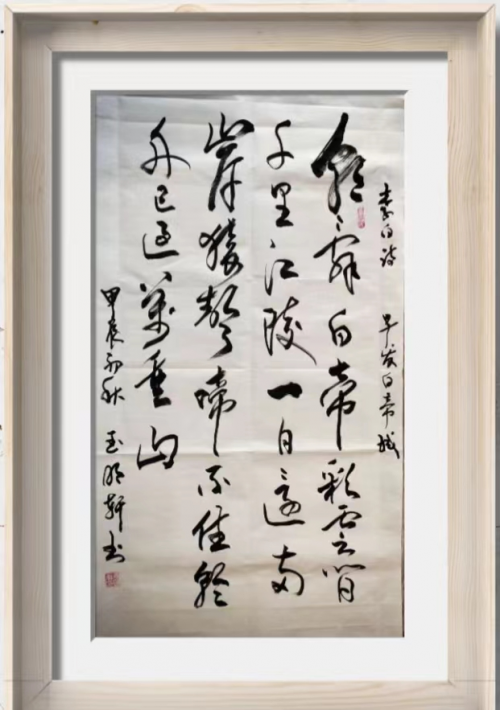 李白诗 早发白帝城
朝辞白帝彩云间
千里江陵一日還两
岸猿聲啼不住輕
舟已过萬重山
甲辰初秋 玉明軒书